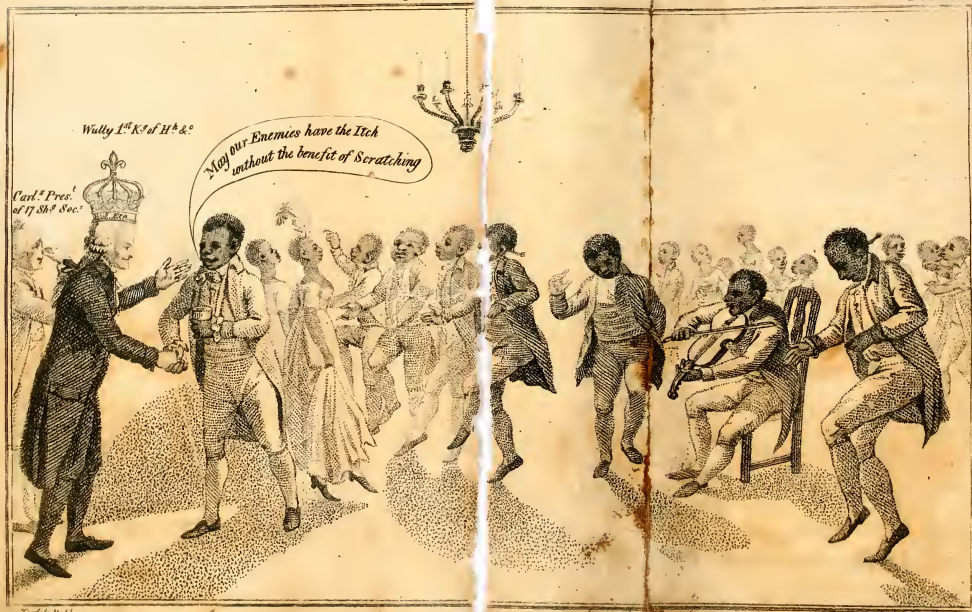 Wully 1st Kg of Hh &c
Carls Prest
of 17 Shs Socs
May our Enemies have the Itch
without the benefit of Scratching